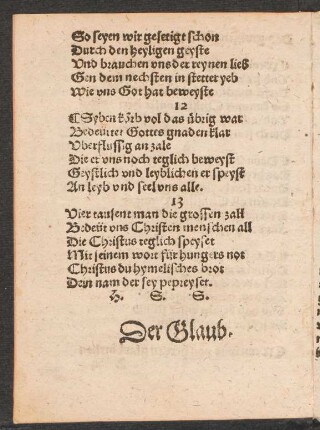 So seyen wir gesetigt schon
Durch den heyligen geyste
Vnd brauchen vns der reynen lieb
Gen dem nechsten in stetter yeb
Wie vns Got hat beweyste
12
¶ Syben körb vol das übrig war
Bedeüttet Gottes gnaden klar
Vberflussig an zale
Die er vns noch teglich beweyst
Geystlich vnd leyblichen er speyst
An leyb vnd seel vns alle.
13
Vier tausent man die grossen zall
Bedeüt vns Christen menschen all
Die Christus teglich speyset
Mit seinem wort für hungers not
Christus du hymelisches brot
Dein nam der sey gepreyset.
H. S. S.
Der Glaub.